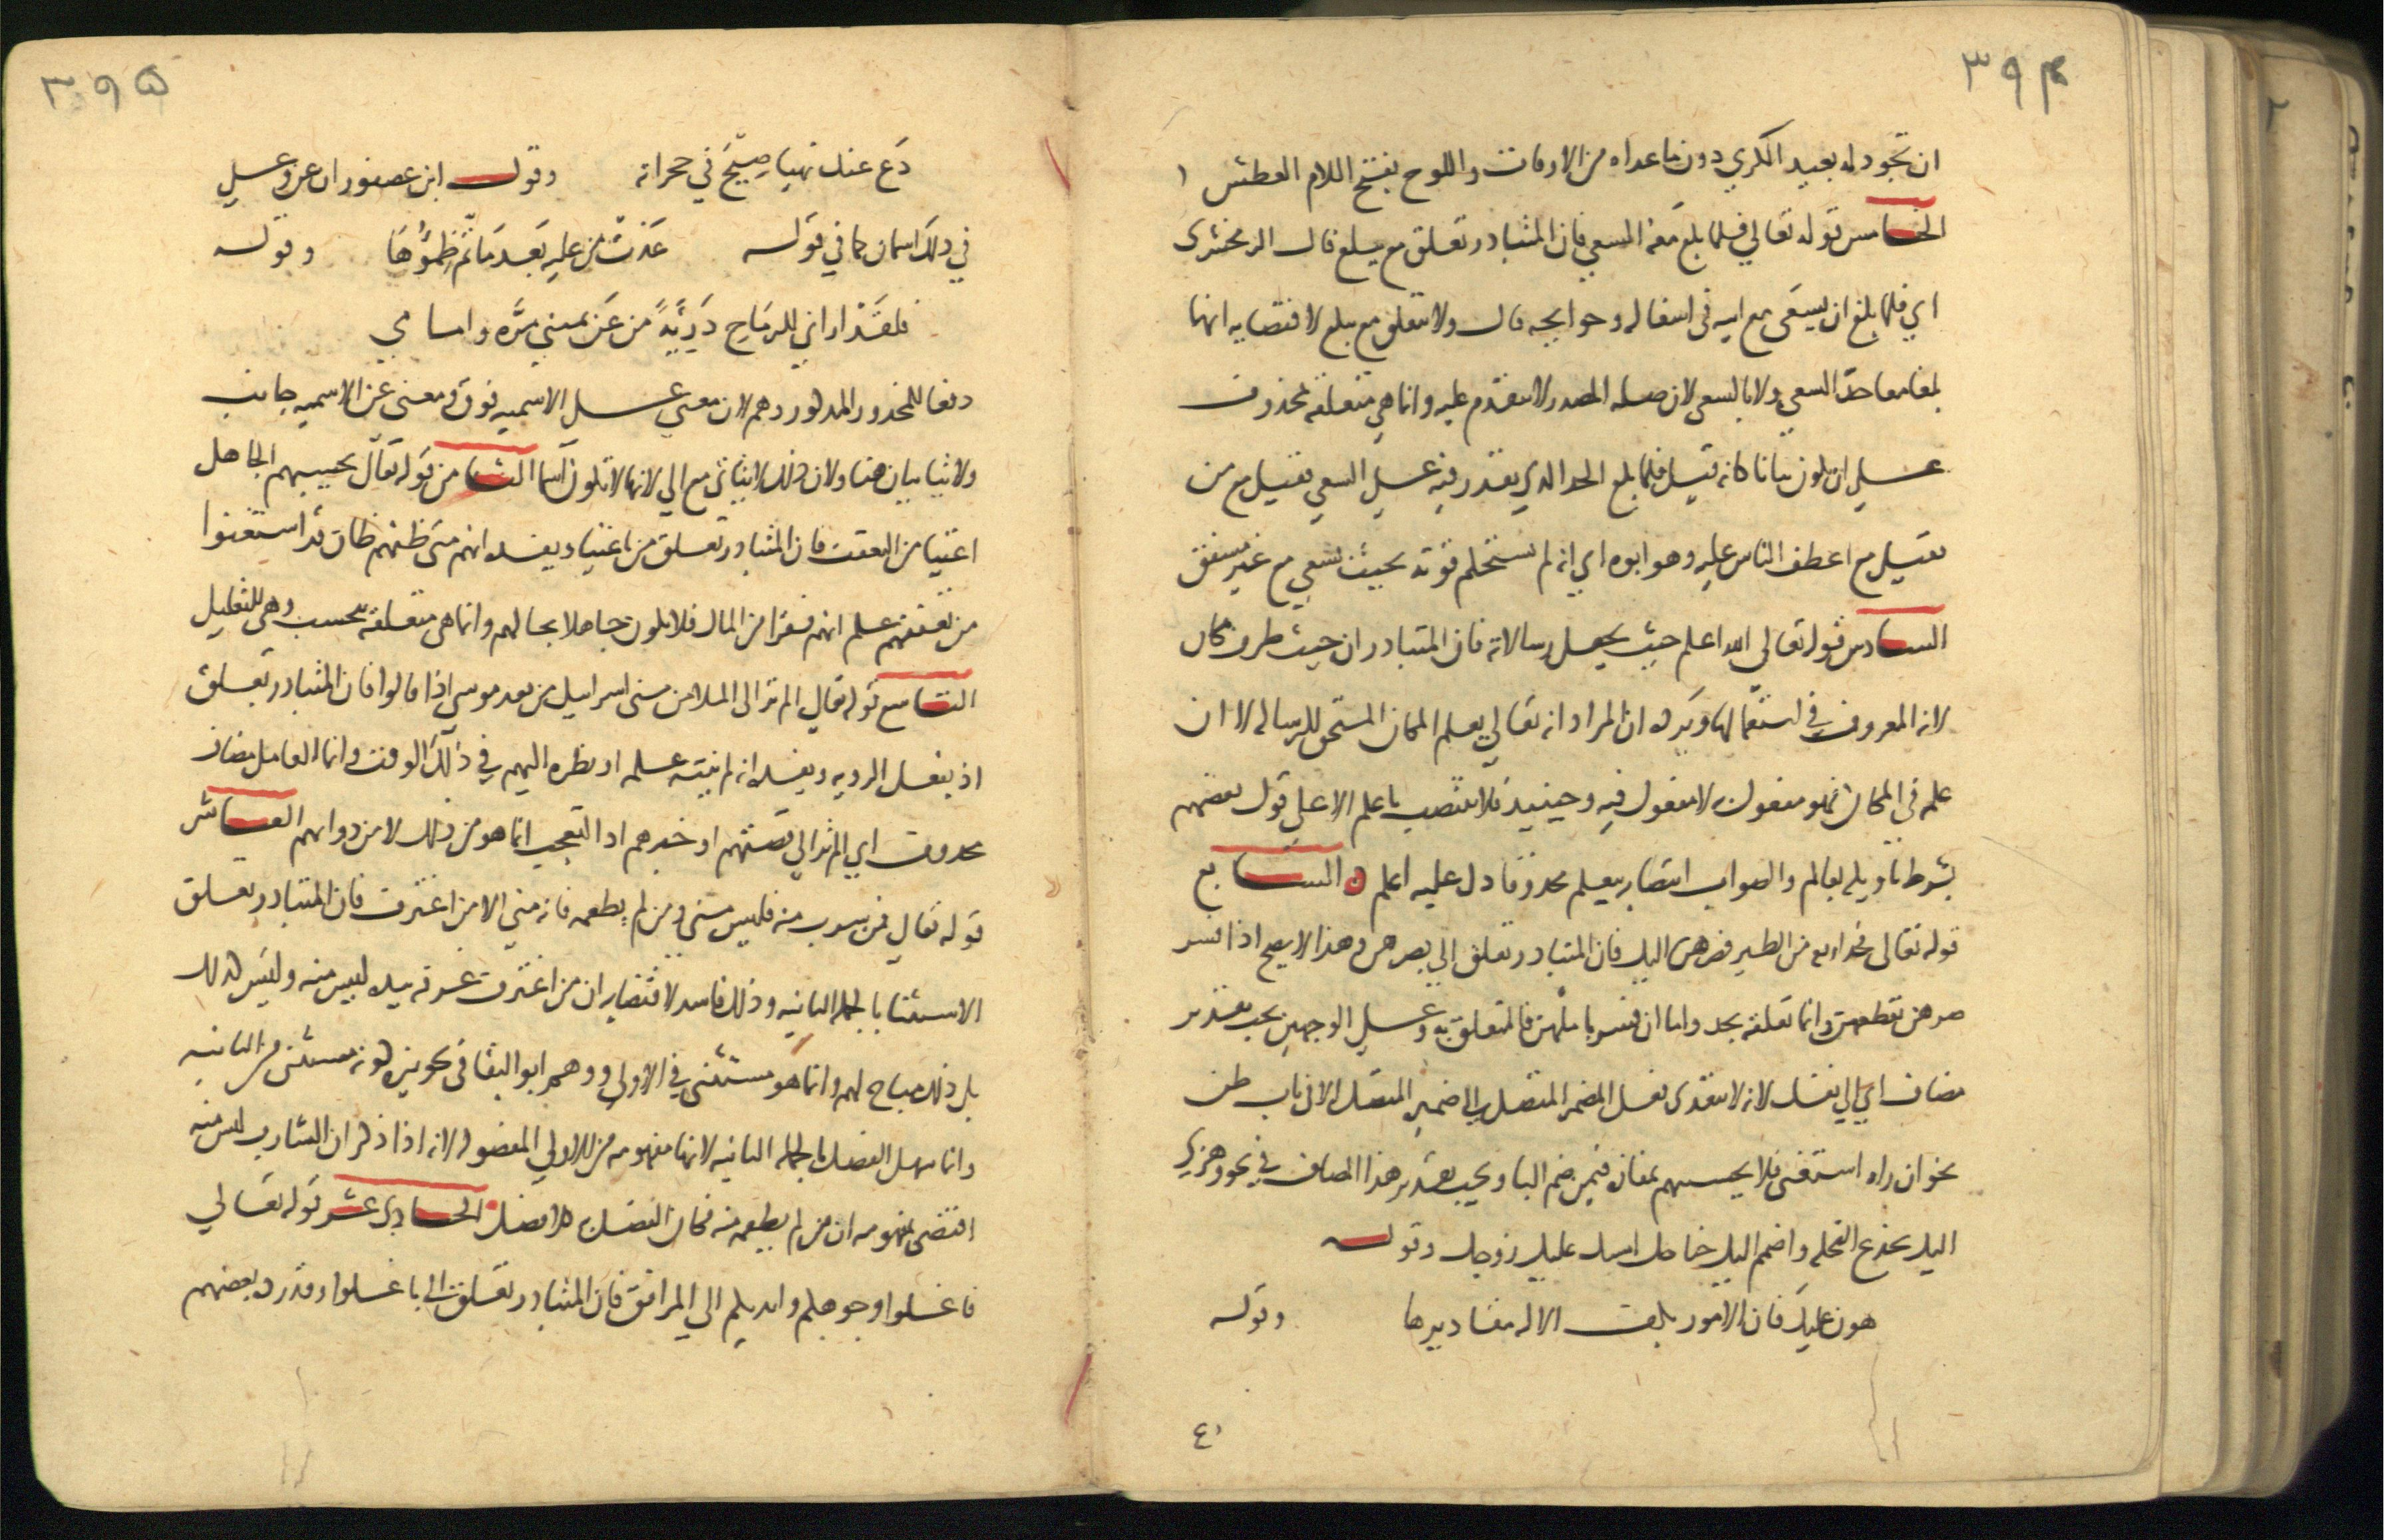 ٣٩٤
ان تجود له بعيد الكري دون ما عداه من الاوقات واللوح بفتح اللام العطش
الخامس قوله تعالي فلما بلغ معه السعي فان المتبادر تعلق مع ببلغ قال الزمخشري
اي فلما بلغ ان يسعي مع ابيه في اشغاله وحوايجه قال ولا يتعلق مع ببلغ لاقتضايه انهما
بلغا معا حد السعي ولا بالسعي لان صلة المصدر لا تتقدم عليه وانما هي متعلقة بمحذوف
علي ان يكون بيانا كانه قيل فلما بلغ الحد الذي يقدر فيه علي السعي فقيل مع من
فقيل مع اعطف الناس عليه وهو ابوه اي انه لم تستحكم قوته بحيث يسعي مع غير مشفق
السادس قوله تعالى الله اعلم حيث يجعل رسالاته فان المتبادر ان حيث ظرف مكان
لانه المعروف في استعمالها ويرده ان المراد انه تعالي يعلم المكان المستحق للرسالة لا ان
علمه في المكان فهو مفعول به لا مفعول فيه وحينيذ فلا ينتصب باعلم الا علي قول بعضهم
بشرط تاويله بعالم والصواب انتصابه بيعلم محذوفا دل عليه اعلم ه السابع
قوله تعالى فخذ اربعة من الطير فصرهن اليك فان المتبادر تعلق الي بصرهن وهذا لا يصح اذا فسر
صرهن بقطعهن وانما تعلقه بخذ واما ان فسر باملهن فالمتعلق به وعلي الوجهين يجب تقدير
مضاف اي الي نفسك لانه لا يتعدى فعل المضمر المتصل الي ضمير المتصل الا في باب ظن
نحو ان راه استغنى فلا يحسبنهم بمفازة فيمن ضم البا ويجب تقدير هذا المضاف في نحو وهزي
اليك بجذع النخلة واضمم اليك جناحك امسك عليك زوجك وقوله
هون عليك فان الامور بكف الاله مقاديرها وقوله
٤٠
٣٩٥
دع عنك نهبا صيح في حجراته وقول ابن عصفور ان عن وعلي
في ذلك اسمان كما في قوله غدت من عليه بعد ما تم ظمؤها وقوله
فلقد اراني للرماح دريئة من عن يميني مرة وامامي
دفعا للمحذور المذكور وهم لان معني علي الاسمية فوق ومعنى عن الاسمية جانب
ولا يتاتيان هنا ولان ذلك لا يتاتي مع الي لانها لا تكون اسما الثامن قوله تعالي يحسبهم الجاهل
اغنيا من التعفف فان المتبادر تعلق من باغنيا ويفسده انهم متى ظنهم ظان قد استغنوا
من تعففهم علم انهم فقرا من المال فلا يكون جاهلا بحالهم وانما هي متعلقة بيحسب وهي للتعليل
التاسع قوله تعالي الم تر الى الملا من بني اسرائيل من بعد موسي اذ قالوا فان المتبادر تعلق
اذ بفعل الروية ويفسده انه لم ينته علمه او نظره اليهم في ذلك الوقت وانما العامل مضاف
محذوف اي الم تر الي قصتهم او خبرهم اذ التعجب انما هو من ذلك لا من ذواتهم العاشر
قوله تعالي فمن شرب منه فليس مني ومن لم يطعمه فانه مني الا من اغترف فان المتبادر تعلق
الاستثنا بالجملة الثانية وذلك فاسد لاقتضايه ان من اغترف غرفة بيده ليس منه وليس كذلك
بل ذلك مباح لهم وانما هو مستثنى في الاولي ووهم ابو البقا في تجويزه كونه مستثنى من الثانية
وانما سهل الفصل بالجملة الثانية لانها مفهومة من الاولي المفصولة لانه اذا ذكر ان الشارب ليس منه
اقتضى مفهومه ان من لم يطعمه منه فكان الفصل به كلا فصل الحادي عشر قوله تعالي
فاغسلوا وجوهكم وايديكم الي المرافق فان المتبادر تعلق الي باغسلوا وقد رده بعضهم